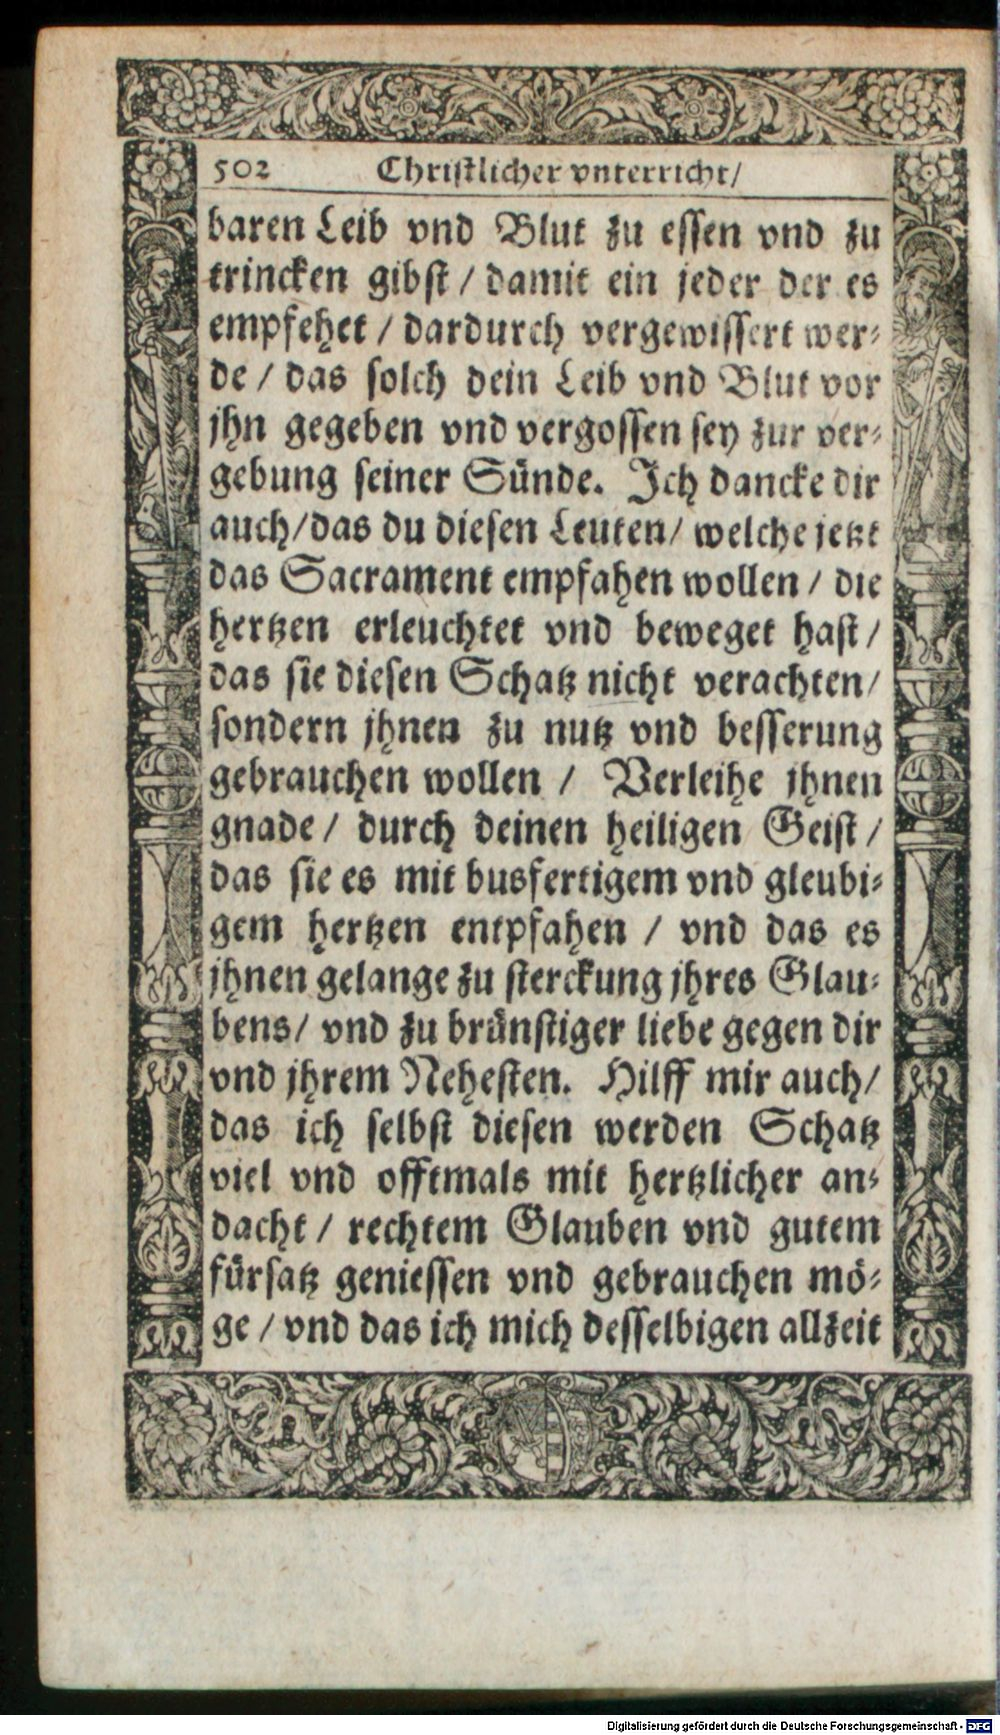 502 Christlicher vnterricht/
baren Leib vnd Blut zu essen vnd zu
trincken gibst / damit ein jeder der es
empfehet / dardurch vergewissert wer⸗
de / das solch dein Leib vnd Blut vor
jhn gegeben vnd vergossen sey zur ver⸗
gebung seiner Sünde. Ich dancke dir
auch/das du diesen Leuten/ welche jetzt
das Sacrament empfahen wollen / die
hertzen erleuchtet vnd beweget hast /
das sie diesen Schatz nicht verachten/
sondern jhnen zu nutz vnd besserung
gebrauchen wollen / Verleihe jhnen
gnade / durch deinen heiligen Geist /
das sie es mit busfertigem vnd gleubi⸗
gem hertzen entpfahen / vnd das es
jhnen gelange zu sterckung jhres Glau⸗
bens/ vnd zu brünstiger liebe gegen dir
vnd jhrem Nehesten. Hilff mir auch/
das ich selbst diesen werden Schatz
viel vnd offtmals mit hertzlicher an⸗
dacht / rechtem Glauben vnd gutem
fürsatz geniessen vnd gebrauchen mö⸗
ge / vnd das ich mich desselbigen allzeit
Digitalisierung gefördert durch die Deutsche Forschungsgemeinschaft - DFG